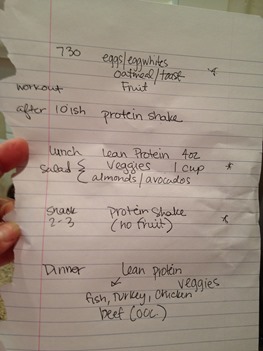 730 eggs/eggwhites
oatmeal/toast *
workout Fruit
after 10ish protein shake
lunch Lean Protein 4oz
salad { veggies 1 cup *
almonds/avocados
snack Protein Shake *
2-3 (no fruit)
Dinner Lean protein
veggies
fish, Turkey, Chicken
beef (occ.)